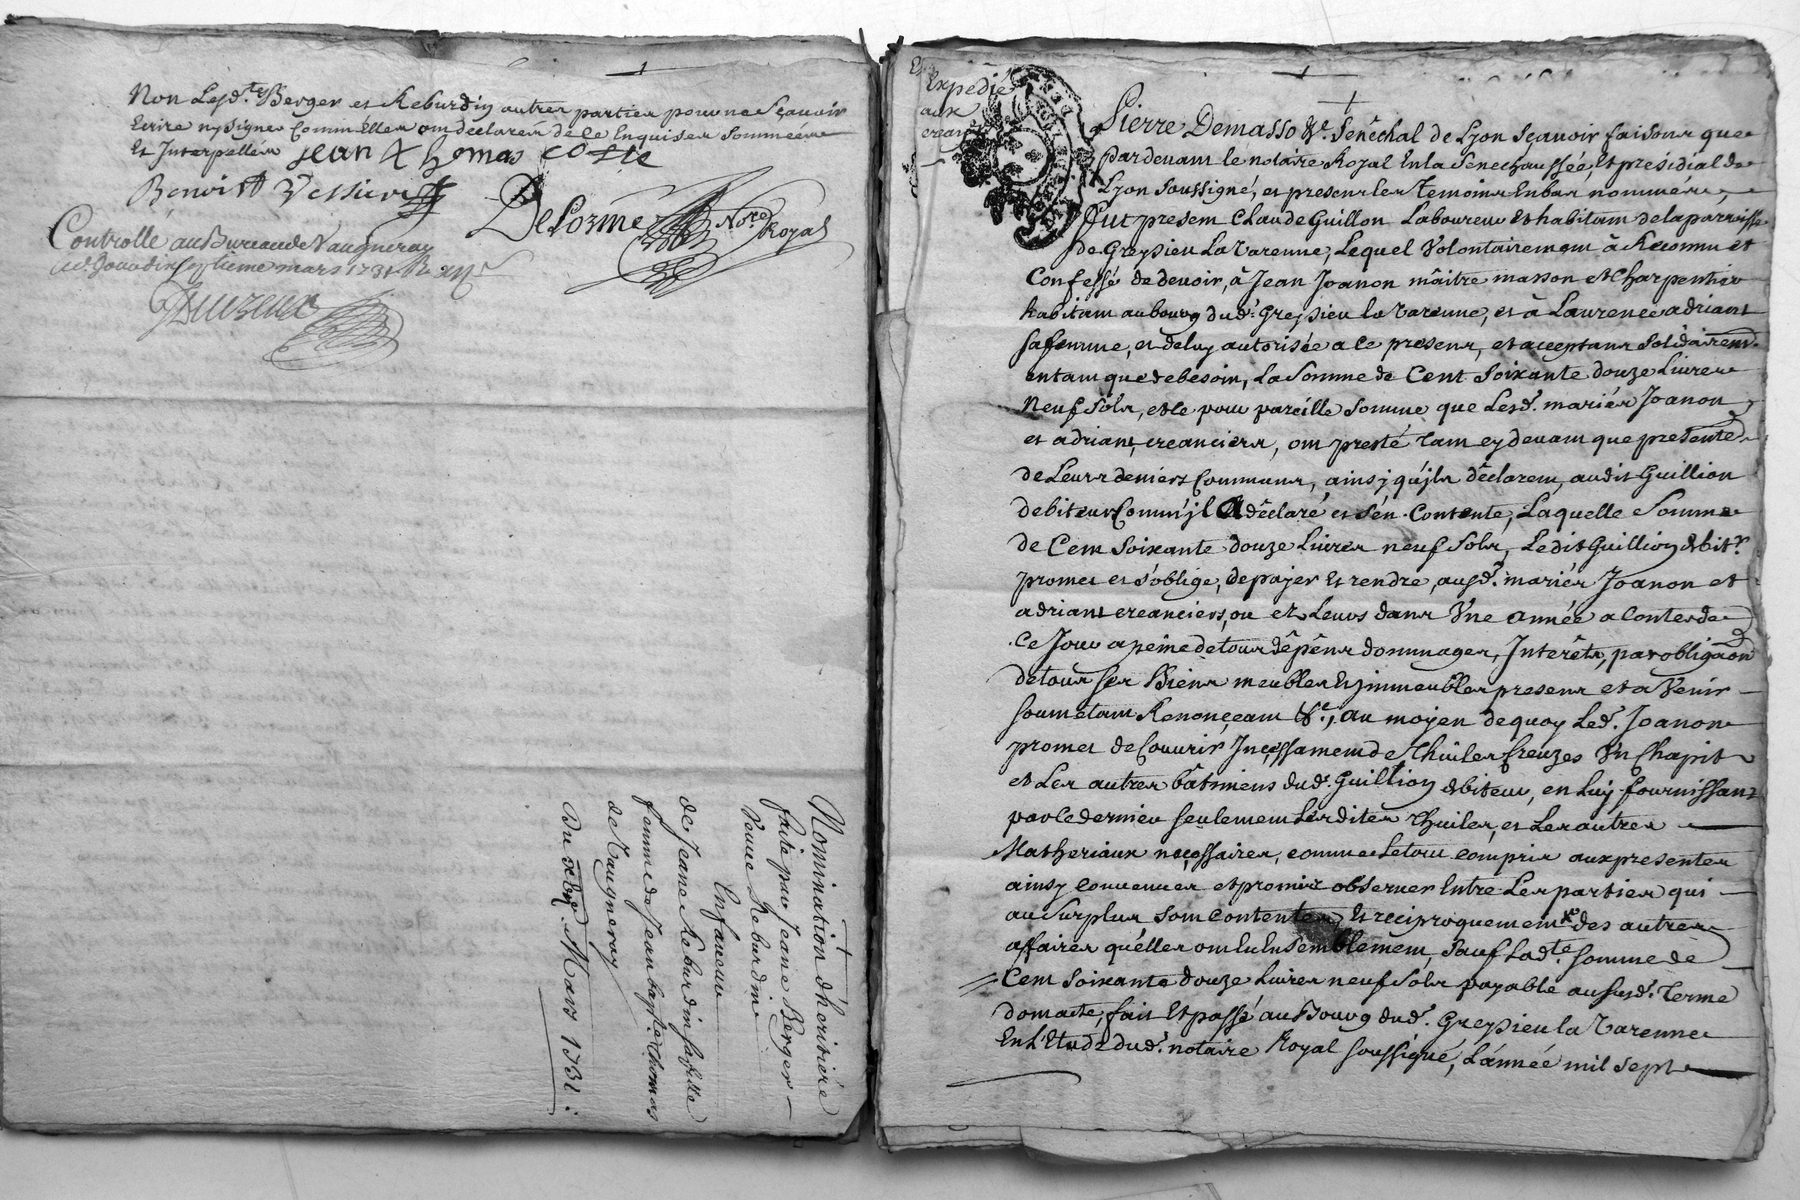 Non Lesd.tes Berger et Reburdin autres parties pour ne sçavoir
Ecrire ny signer comm'elles ont declarer de ce Enquises sommées
Et Interpellées jean thomas
Benoist Vessiere
Delorme No.re Royal
Controllé au Bureau de Vaugneray
septieme mars 1731
Nomination d'heritiére
faite par Jeane Berger
Veuve Reburdin
En faveur
de Jeane Reburdin sa fille
femme de Jean bap.te thomas
de Vaugneray
Du Mars 1731.
Expedié
aux
crean.
Pierre Demasso &c. Senêchal de Lyon sçavoir faisons que
Pardevant le notaire Royal En la Senechaussée, et présidial de
Lyon soussigné, et presens les Temoins Enbas nommés,
fut present Claude Guillon Laboureur et habitant de la parroisse
de Greysieu La Varenne, Lequel Volontairement â Reconnu et
Confessé de devoir, â Jean Joanon mâitre masson et Charpentier
habitant au bourg dud. Greysieu la Varenne, et â Laurence adriant
sa femme, et de luy autorisée a ce presens, et acceptans solidairem.t
entant que de besoin, La somme de Cent soixante douze Livres
Neuf sols, et ce pour pareille somme que Lesd. mariés Joanon
et adriant, creanciers, ont presté tant cy devant que presentem.t
de Leurs deniers Communs, ainsy qu'jls dêclarent, audit Guillion
debiteur Comm'jl A dêclaré et s'en Contente, Laquelle Somme
de Cent soixante douze Livres neuf sols, Ledit Guillion debit.r
promet et s'oblige, de payer et rendre, ausd. mariés Joanon et
adriant creanciers, ou ez Leurs dans Une année a Conter de
Ce Jour a peine de tous dêpens dommages, Interêts, par obligãon
de tous ses Biens meubles et jnmeubles presens et a Venir
soumétant Renonçeant &c., au moyen de quoy Led. Joanon
promet de Couvrir Incessament de Thuiles Creuzes Un Chapit
et Les autres bâtimens dud. Guillion debiteur, en Luy fournissant
par ce dernier seulement Lesdites Thuiles, et Les autres
Matheriaux neçessaires, comme Le tout compris aux presentes
ainsy convenues et promis observer Entre Les parties qui
au Surplus sont contentes, Et reciproquement des autres
affaires qu'elles ont Eu Ensemblement, Sauf Lad.te somme de
Cent soixante douze Livres neuf Sols payable au susd. terme
dont acte, fait Et passé au Bourg dud. Greysieu la Varenne
En L'Etude dud. notaire Royal soussigné, L'année mil sept